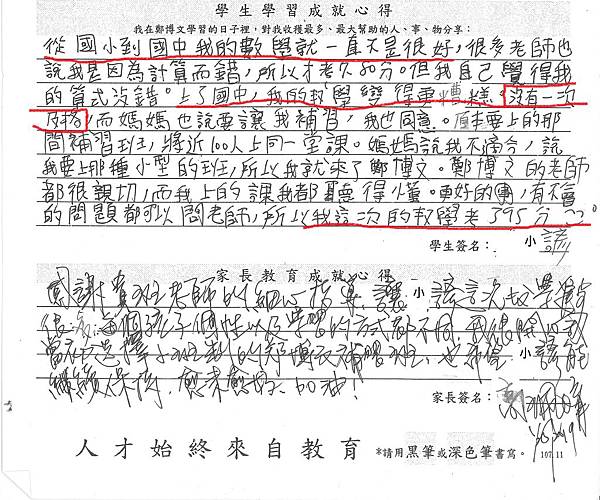 學生學習成就心得
我在鄭博文學習的日子裡，對我收穫最多、最大幫助的人、事、物分享：
從國小到國中我的數學就一直不是很好，很多老師也
說我是因為計算而錯，所以才考不80分。但我自己覺得我
的算式沒錯。上了國中，我的數學變得更糟糕。沒有一次
及格，而媽媽也說要讓我補習，我也同意。原本要上的那
間補習班，將近100人上同一堂課。媽媽說我不適合，說
我要上那種小型的班，所以我就來了鄭博文。鄭博文的老師
都很親切，而我上的課我都聽得懂。更好的，有不會
的問題都可以問老師，所以我這次的數學考了95分^^。
學生簽名：小諺
家長教育成就心得
感謝貴班老師的細心指導，讓小諺這次數學
每個孩子個性以及學習的方式都不同，我很開心
當初選擇小班制的鄭博文補習班，也希望小諺能
繼續保持，愈來愈好，加油！
家長簽名：
人才始終來自教育
*請用黑筆或深色筆書寫。
107.11